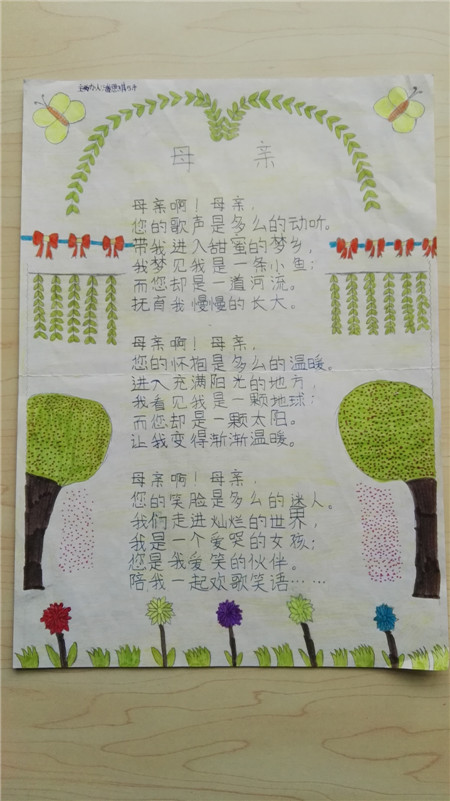 母 亲
母亲啊！母亲，
您的歌声是多么的动听。
带我进入甜蜜的梦乡，
我梦见我是一条小鱼；
而您却是一道河流。
抚育我慢慢的长大。
母亲啊！母亲，
您的怀抱是多么的温暖。
进入充满阳光的地方，
我看见我是一颗地球；
而您却是一颗太阳。
让我变得渐渐温暖。
母亲啊！母亲，
您的笑脸是多么的迷人。
我们走进灿烂的世界，
我是一个爱哭的女孩；
您是我爱笑的伙伴。
陪我一起欢歌笑语……